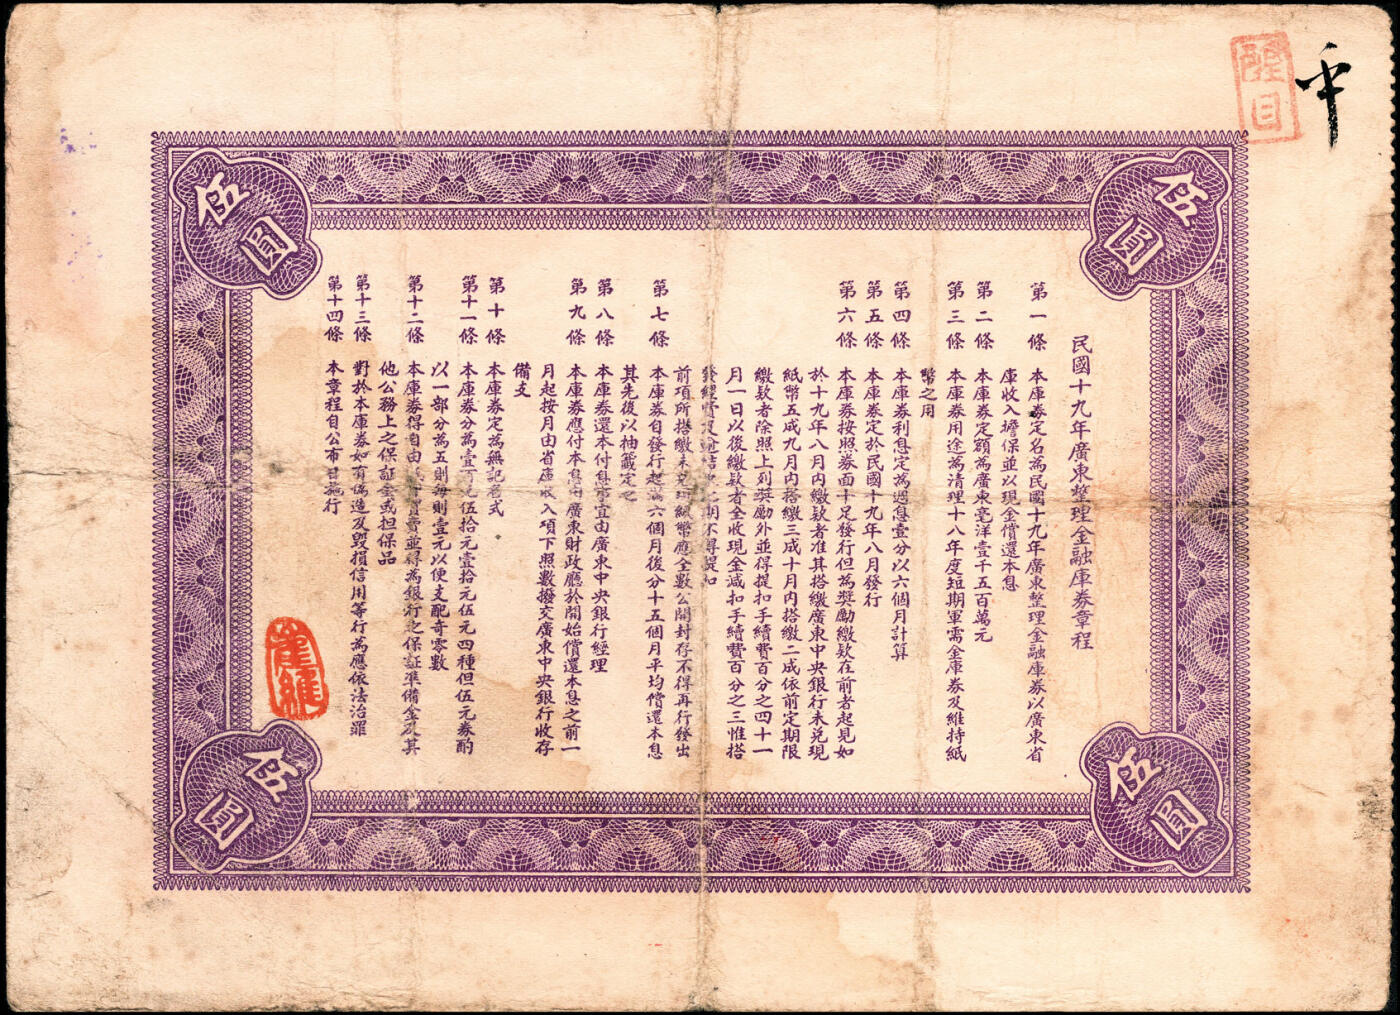 伍圓
伍圓
民國十九年廣東整理金融庫券章程
第一條 本庫券定名為民國十九年廣東整理金融庫券以廣東省
庫收入擔保並以現金償還本息
第二條 本庫券定額為廣東毫洋壹千五百萬元
第三條 本庫券用途為清理十八年度短期軍需金庫券及維持紙
幣之用
第四條 本庫券利息定為週息壹分以六個月計算
第五條 本庫券定於民國十九年八月發行
第六條 本庫券按照券面十足發行但為獎勵繳款在前者起見如
於十九年八月內繳款者准其搭繳廣東中央銀行未兌現
紙幣五成九月內搭繳三成十月內搭繳二成依前定期限
繳款者除照上列獎勵外並得提扣手續費百分之四十一
月一日以後繳款者全收現金減扣手續費百分之三惟搭
發經費
前項所搭繳未兌現紙幣應全數公開封存不得再行發出
第七條 本庫券自發行起滿六個月後分十五個月平均償還本息
其先後以抽籤定之
第八條 本庫券還本付息事宜由廣東中央銀行經理
第九條 本庫券應付本息由廣東財政廳於開始償還本息之前一
月起按月由省庫收入項下照數撥交廣東中央銀行收存
備支
第十條 本庫券定為無記名式
第十一條 本庫券分為壹百元伍拾元壹拾元伍元四種但伍元券酌
以一部分為五則每則壹元以便支配奇零數
第十二條 本庫券得自由賣並得為銀行之保証準備金及其
他公務上之保証金或担保品
第十三條 對於本庫券如有偽造及毀損信用等行為應依法治罪
第十四條 本章程自公布日施行
伍圓
伍圓